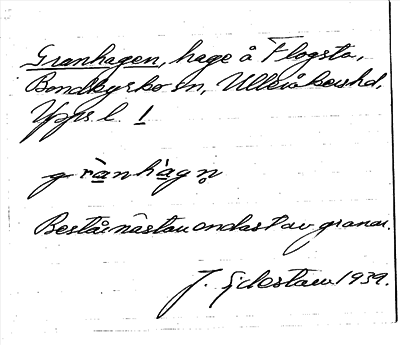 Granhagen, hage å Flogsta,
Bondkyrko sn, Ulleråkers hd,
Upps. l. 1
grànhàgn̥
Består nästan endast av granar.
J. Eklestam 1939.